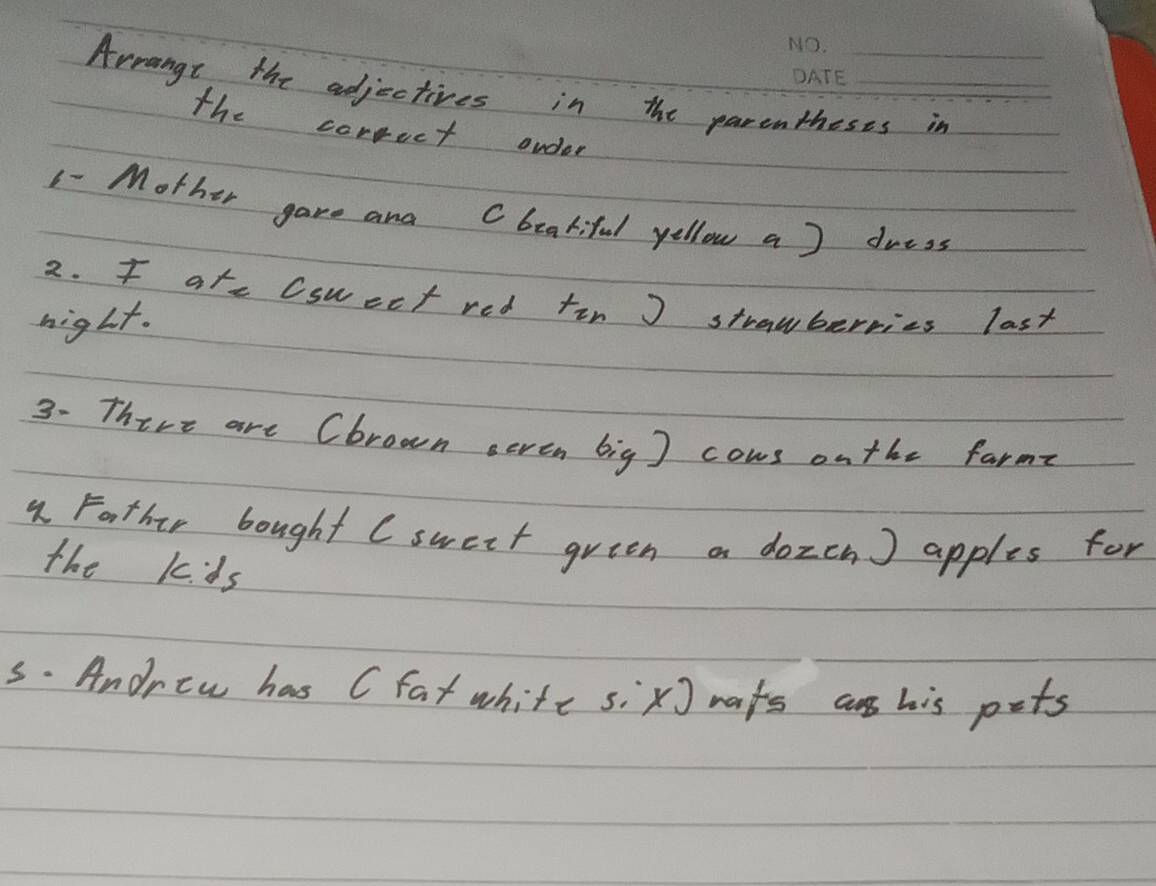 NO.
DATE
Arrange the adjectives in the parentheses in
the correct order
1- Mother gave ana (beatiful yellow a) dress
2. I ate (sweet red ten) strawberries last
night.
3- There are (brown seven big) cows on the farme
4 Father bought (sweet green a dozen) apples for
the kids
5. Andrew has (fat white six) rats as his pets